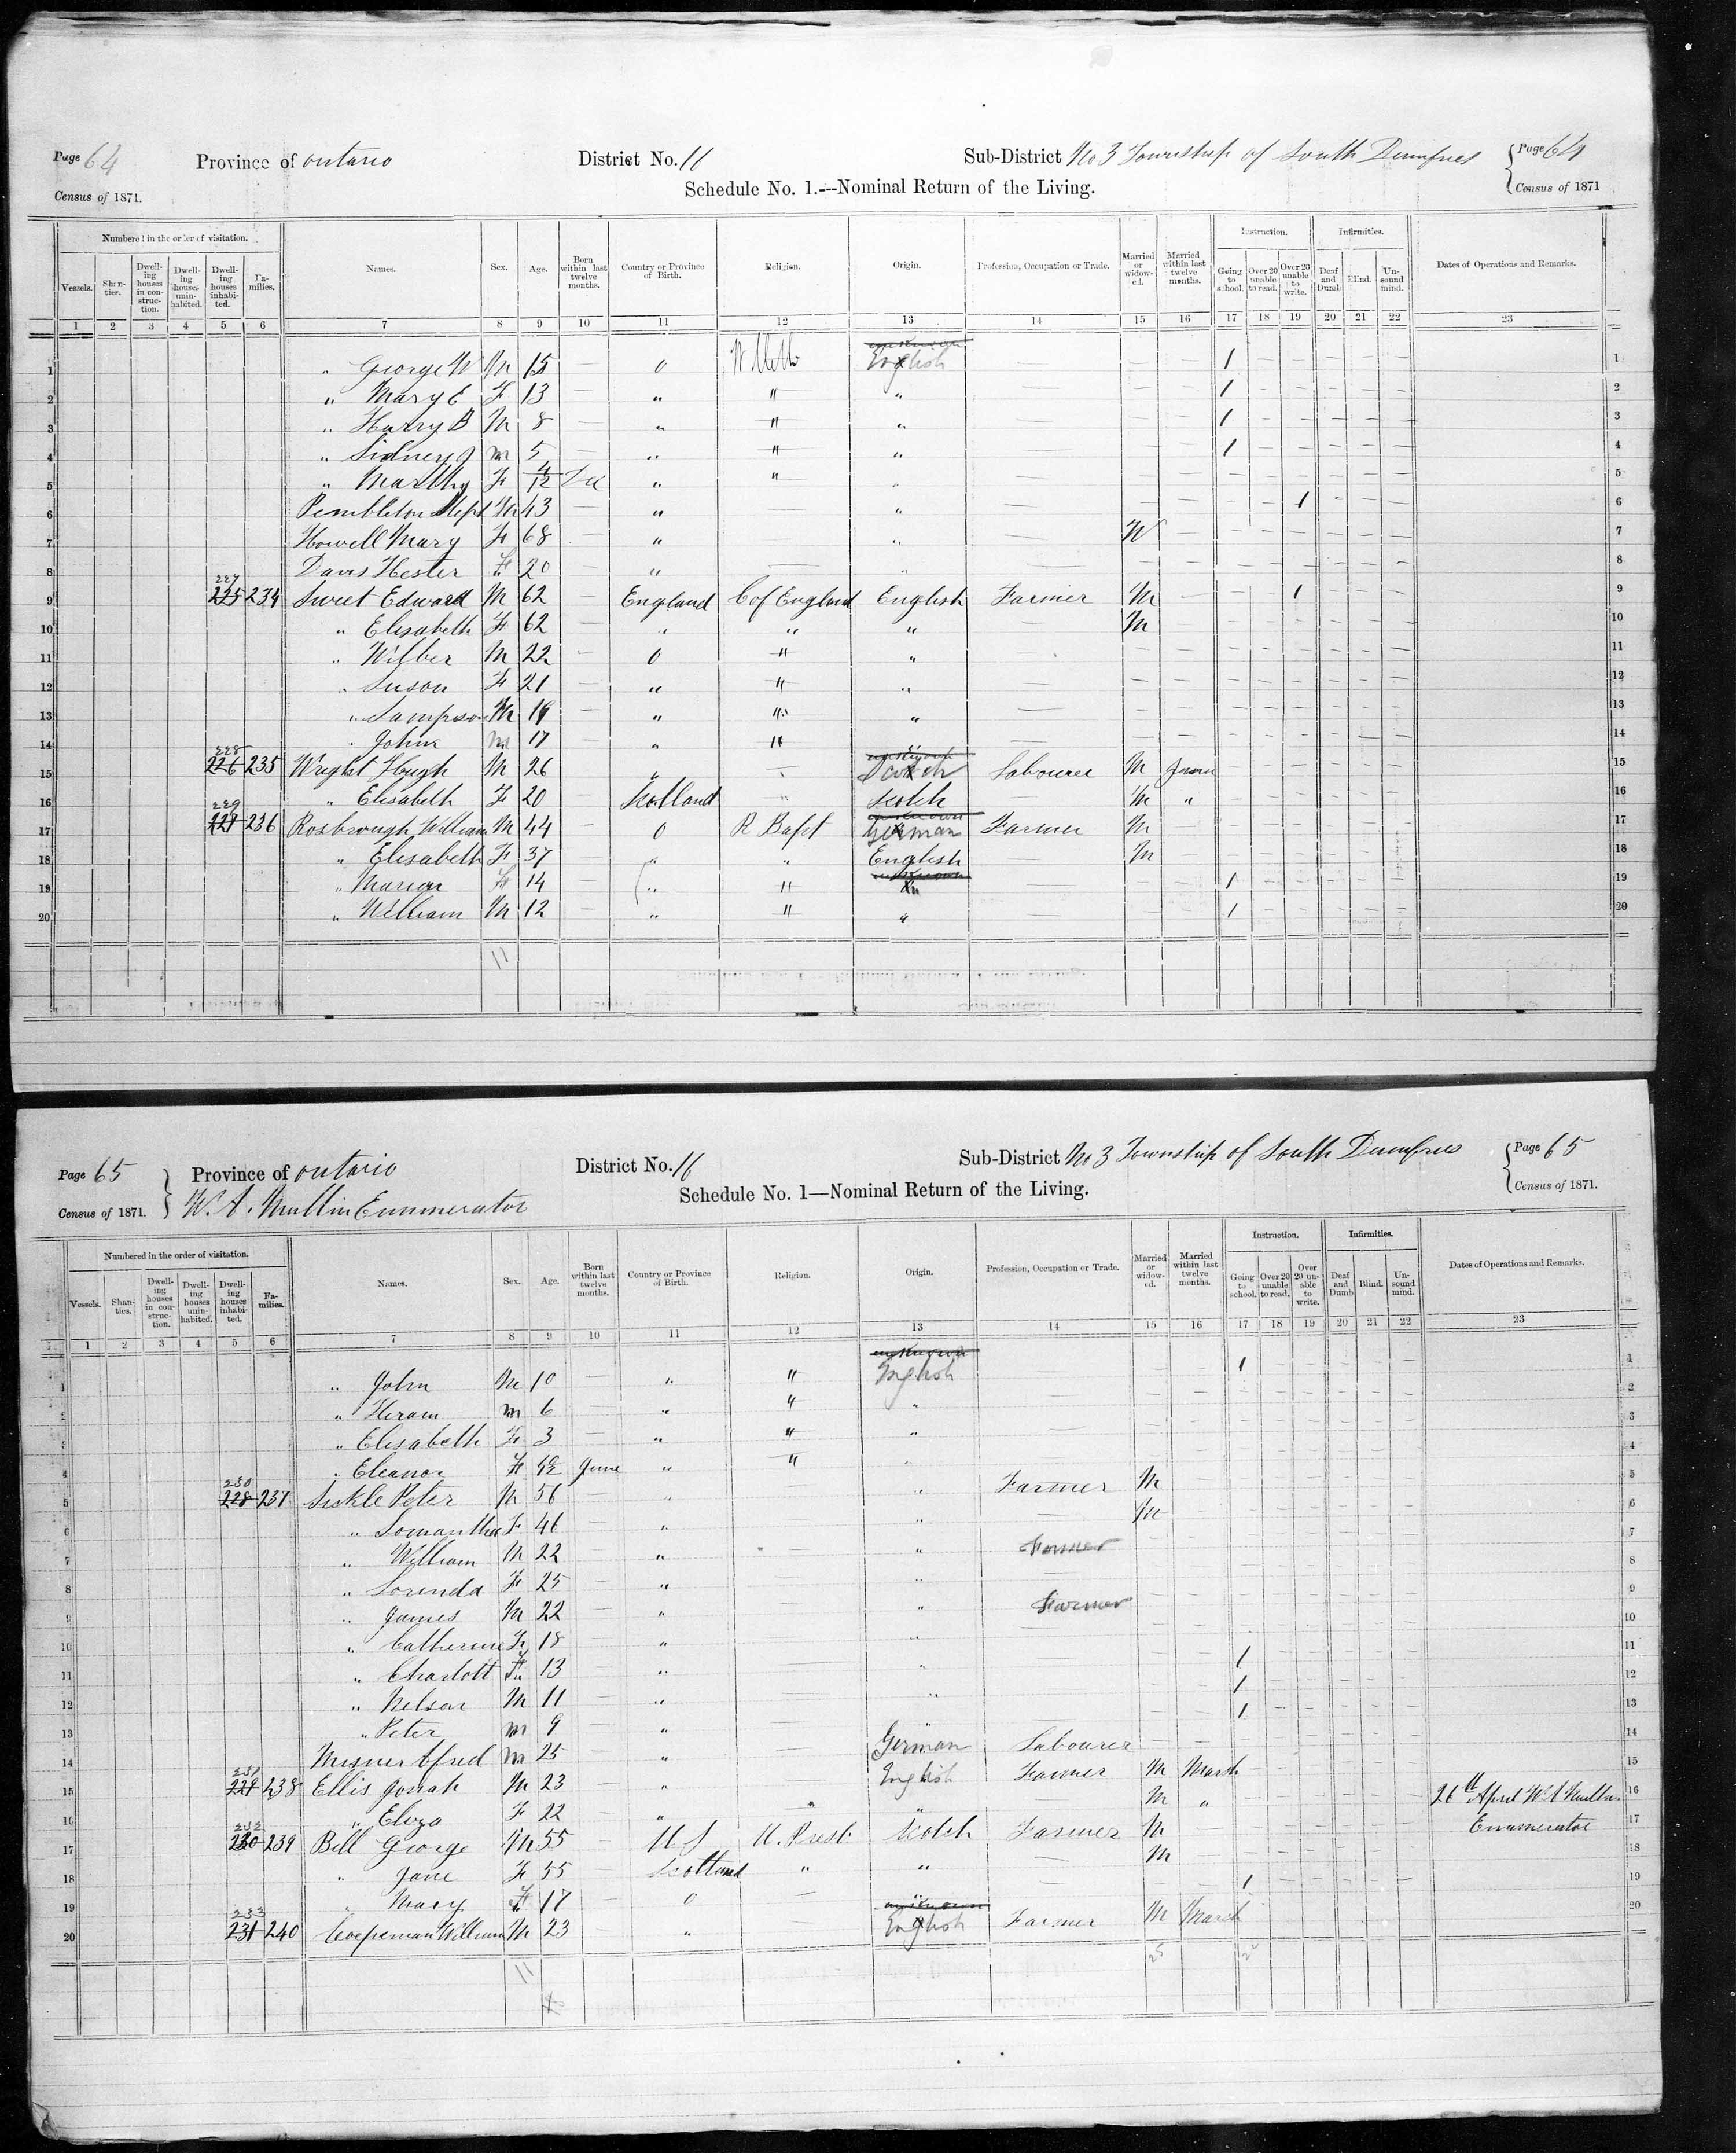 Page 64 Province of Ontario District No. 11 Sub-District No 3 Township of South Dumfries Page 64
Census of 1871. Schedule No. 1.---Nominal Return of the Living. Census of 1871
Numbered in the order of visitation. Instruction. Infirmities.
Vessels. Shanties. Dwelling houses in construction. Dwelling houses uninhabited. Dwelling houses inhabited. Families. Names. Sex. Age. Born within last twelve months. Country or Province of Birth. Religion. Origin. Profession, Occupation or Trade. Married or widowed. Married within last twelve months. Going to school. Over 20 unable to read. Over 20 unable to write. Deaf and Dumb Blind. Unsound mind. Dates of Operations and Remarks.
1 2 3 4 5 6 7 8 9 10 11 12 13 14 15 16 17 18 19 20 21 22 23
1 " George W M 15 — O W. Meth unknown English — — — 1 — — — — — 1
2 " Mary E F 13 — " " " — — — 1 — — — — — 2
3 " Harry B M 8 — " " " — — — 1 — — — — — 3
4 " Sidney J M 5 — " " " — — — 1 — — — — — 4
5 " Martha F 4/12 Dec " " " — — — — — — — — — 5
6 Pembleton M 43 — " — " — — — — — 1 — — — 6
7 Howell Mary F 68 — " — " — W — — — — — — — 7
8 Davis Hester F 20 — " — " — — — — — — — — — 8
9 227 225 234 Sweet Edward M 62 — England C of England English Farmer M — — — 1 — — — 9
10 " Elisabeth F 62 — " " " — M — — — — — — — 10
11 " Wilber M 22 — O " " — — — — — — — — — 11
12 " Suson F 21 — " " " — — — — — — — — — 12
13 " Sampson M 19 — " " " — — — — — — — — — 13
14 " John M 17 — " " " — — — — — — — — — 14
15 228 226 235 Wright Hugh M 26 — " — unknown Scotch Labourer M — — — — — — — 15
16 " Elisabeth F 20 — Scotland " Scotch — M " — — — — — — 16
17 229 227 236 Rosbrough William M 44 — O R Bapt unknown German Farmer M — — — — — — — 17
18 " Elisabeth F 37 — " " English — M — — — — — — — 18
19 " Marion F 14 — " " unknown — — — 1 — — — — — 19
20 " William M 12 — " " " — — — 1 — — — — — 20
Page 65 Province of Ontario District No. 11 Sub-District No 3 Township of South Dumfries Page 65
Census of 1871. W. A. Mullin Enumerator Schedule No. 1—Nominal Return of the Living. Census of 1871.
Numbered in the order of visitation. Instruction. Infirmities.
Vessels. Shanties. Dwelling houses in construction. Dwelling houses uninhabited. Dwelling houses inhabited. Families. Names. Sex. Age. Born within last twelve months. Country or Province of Birth. Religion. Origin. Profession, Occupation or Trade. Married or widowed. Married within last twelve months. Going to school. Over 20 unable to read. Over 20 unable to write. Deaf and Dumb Blind. Unsound mind. Dates of Operations and Remarks.
1 2 3 4 5 6 7 8 9 10 11 12 13 14 15 16 17 18 19 20 21 22 23
1 " John M 10 — " " unknown English — — — 1 — — — — — 1
2 " Hiram M 6 — " " " — — — — — — — — — 2
3 " Elisabeth F 3 — " " " — — — — — — — — — 3
4 " Eleanor F June " " " — — — — — — — — — 4
5 230 228 237 Sickle Peter M 56 — " — " Farmer M — — — — — — — 5
6 " Somantha F 46 — " — " — M — — — — — — — 6
7 " William M 22 — " — " Farmer — — — — — — — — 7
8 " Lorenda F 25 — " — " — — — — — — — — — 8
9 " James M 22 — " — " Farmer — — — — — — — — 9
10 " Catherine F 18 — " — " — — — — — — — — — 10
11 " Charlott F 13 — " — " — — — 1 — — — — — 11
12 " Nelson M 11 — " — " — — — 1 — — — — — 12
13 " Peter M 9 — " — " — — — 1 — — — — — 13
14 Misner M 25 — " — German Labourer — — — — — — — — 14
15 231 229 238 Ellis Josiah M 23 — " — English Farmer M March — — — — — — 15
16 " Eliza F 22 — " — " — M " — — — — — — 26th April W A Mullin 16
17 232 230 239 Bell George M 55 — U S U. Presb Scotch Farmer M — — — — — — — Enumerator 17
18 " Jane F 55 — Scotland " " — M — — — — — — — 18
19 " Mary F 17 — O — " — — — 1 — — — — — 19
20 233 231 240 Coepeman William M 23 — " — unknown English Farmer M March — — — — — — 20